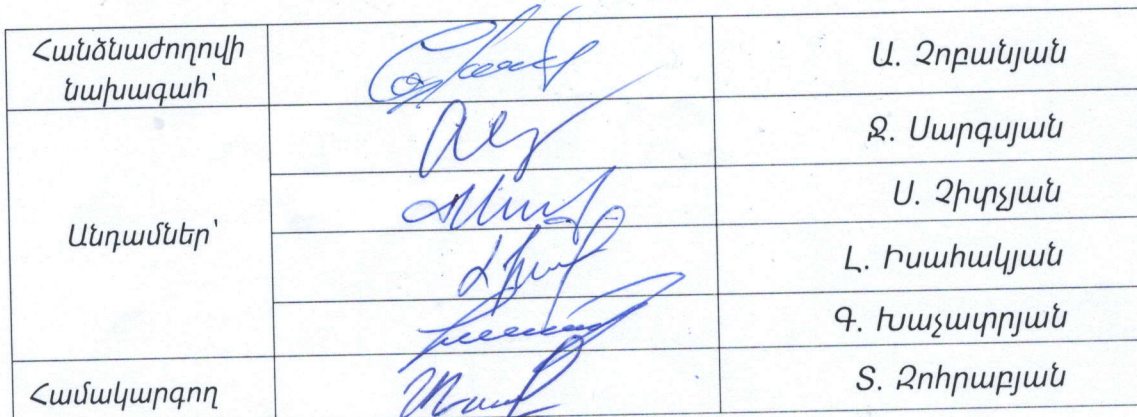 Հանձնաժողովի
նախագահ՝
Ա. Չոբանյան
Ջ. Սարգսյան
Ս. Չիտչյան
Անդամներ՝
Լ. Իսահակյան
Գ. Խաչատրյան
Համակարգող
Տ. Զոհրաբյան